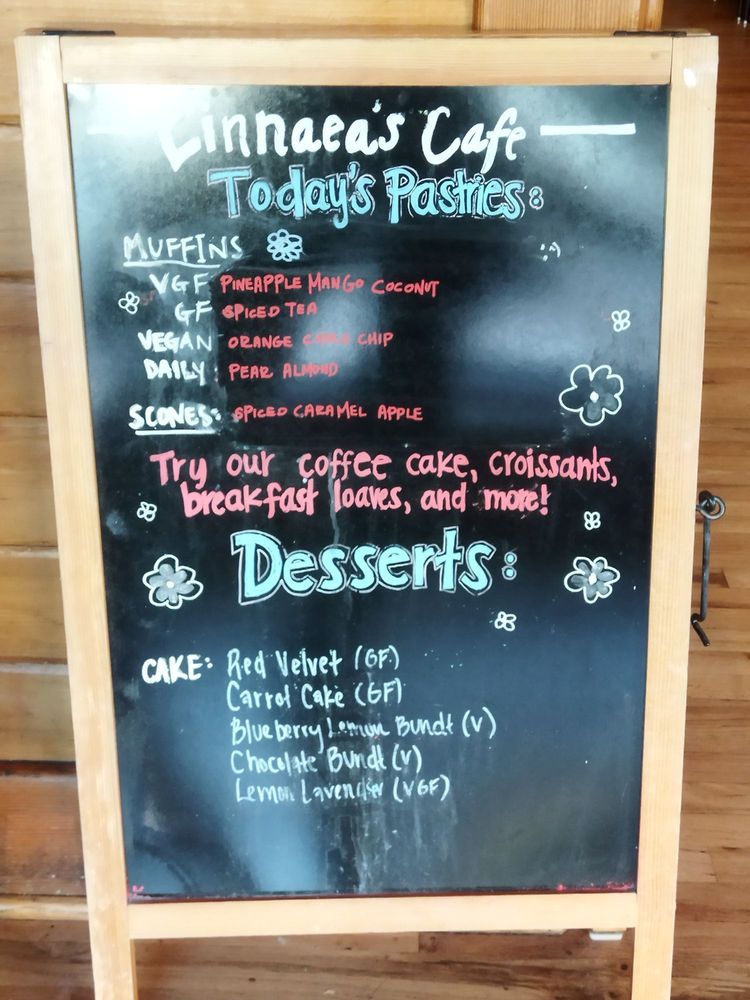 Linnaea's Cafe
Today's Pastries:
MUFFINS
VGF PINEAPPLE MANGO COCONUT
GF SPICED TEA
VEGAN ORANGE CHIP
DAILY: PEAR ALMOND
SCONES: SPICED CARAMEL APPLE
Try our coffee cake, croissants,
breakfast loaves, and more!
Desserts:
CAKE: Red Velvet (GF)
Carrot Cake (GF)
Blueberry Lemon Bundt (V)
Chocolate Bundt (V)
Lemon Lavender (VGF)